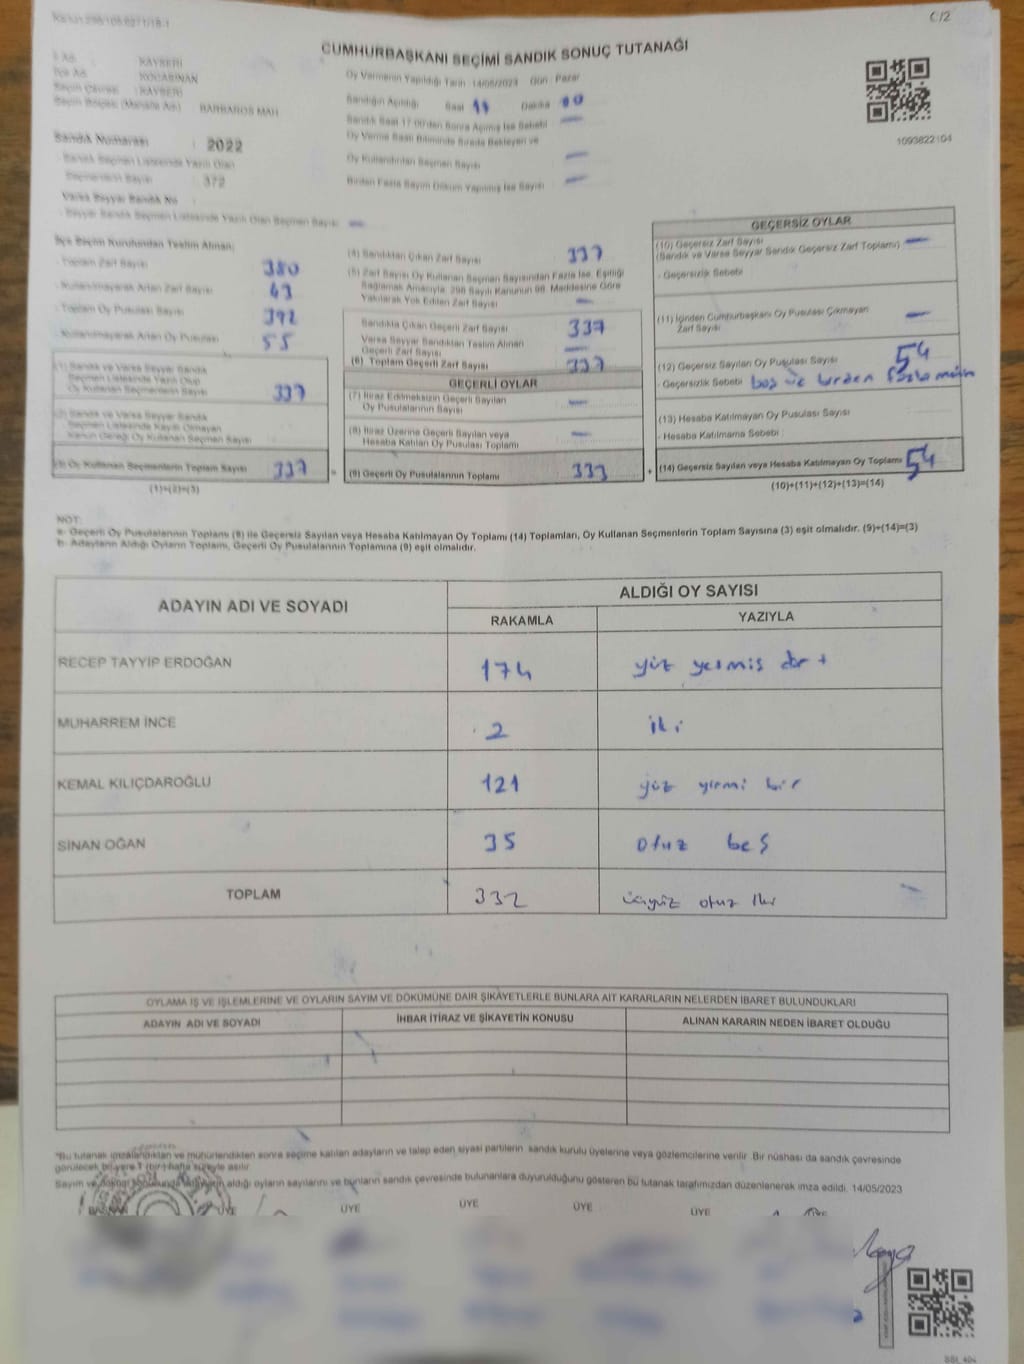 C/2
CUMHURBAŞKANI SEÇİMİ SANDIK SONUÇ TUTANAĞI
İl Adı : KAYSERİ
İlçe Adı : KOCASİNAN
Seçim Çevresi : KAYSERİ
Seçim Bölgesi (Mahalle Adı) : BARBAROS MAH
Sandık Numarası : 2022
Sandık Seçmen Listesinde Yazılı Olan
Seçmenlerin Sayısı : 372
Varsa Seyyar Sandık No
- Seyyar Sandık Seçmen Listesinde Yazılı Olan Seçmen Sayısı : —
Oy Vermenin Yapıldığı Tarih : 14/05/2023 Gün : Pazar
Sandığın Açıldığı Saat Dakika
Sandık Saat 17:00'den Sonra Açılmış İse Sebebi —
Oy Verme Saati Bitiminde Sırada Bekleyen ve
Oy Kullandırılan Seçmen Sayısı —
Birden Fazla Sayım Döküm Yapılmış İse Sayısı —
1093822104
İlçe Seçim Kurulundan Teslim Alınan;
- Toplam Zarf Sayısı 380
- Kullanılmayarak Artan Zarf Sayısı 43
- Toplam Oy Pusulası Sayısı 392
- Kullanılmayarak Artan Oy Pusulası Sayısı 55
(1) Sandık ve Varsa Seyyar Sandık
Seçmen Listesinde Yazılı Olup
Oy Kullanan Seçmenlerin Sayısı 337
(2) Sandık ve Varsa Seyyar Sandık
Seçmen Listesinde Kayıtlı Olmayan
Kanun Gereği Oy Kullanan Seçmen Sayısı
(3) Oy Kullanan Seçmenlerin Toplam Sayısı 337
(1)+(2)=(3)
(4) Sandıktan Çıkan Zarf Sayısı 337
(5) Zarf Sayısı Oy Kullanan Seçmen Sayısından Fazla İse, Eşitliği
Sağlamak Amacıyla, 298 Sayılı Kanunun 98. Maddesine Göre
Yakılarak Yok Edilen Zarf Sayısı —
Sandıkta Çıkan Geçerli Zarf Sayısı 337
Varsa Seyyar Sandıktan Teslim Alınan
Geçerli Zarf Sayısı —
(6) Toplam Geçerli Zarf Sayısı 337
GEÇERLİ OYLAR
(7) İtiraz Edilmeksizin Geçerli Sayılan
Oy Pusulalarının Sayısı —
(8) İtiraz Üzerine Geçerli Sayılan veya
Hesaba Katılan Oy Pusulası Toplamı —
(9) Geçerli Oy Pusulalarının Toplamı 333
GEÇERSİZ OYLAR
(10) Geçersiz Zarf Sayısı —
(Sandık ve Varsa Seyyar Sandık Geçersiz Zarf Toplamı)
- Geçersizlik Sebebi
(11) İçinden Cumhurbaşkanı Oy Pusulası Çıkmayan
Zarf Sayısı —
(12) Geçersiz Sayılan Oy Pusulası Sayısı
- Geçersizlik Sebebi boş ve birden fazla
(13) Hesaba Katılmayan Oy Pusulası Sayısı
- Hesaba Katılmama Sebebi :
(14) Geçersiz Sayılan veya Hesaba Katılmayan Oy Toplamı
(10)+(11)+(12)+(13)=(14)
NOT:
a- Geçerli Oy Pusulalarının Toplamı (9) ile Geçersiz Sayılan veya Hesaba Katılmayan Oy Toplamı (14) Toplamları, Oy Kullanan Seçmenlerin Toplam Sayısına (3) eşit olmalıdır. (9)+(14)=(3)
b- Adayların Aldığı Oyların Toplamı, Geçerli Oy Pusulalarının Toplamına (9) eşit olmalıdır.
ADAYIN ADI VE SOYADI
ALDIĞI OY SAYISI
RAKAMLA YAZIYLA
RECEP TAYYİP ERDOĞAN 174 yüz yetmiş dört
MUHARREM İNCE 2 iki
KEMAL KILIÇDAROĞLU 121 yüz yirmi bir
SİNAN OĞAN 35 otuz beş
TOPLAM 332 üçyüz otuz iki
OYLAMA İŞ VE İŞLEMLERİNE VE OYLARIN SAYIM VE DÖKÜMÜNE DAİR ŞİKAYETLERLE BUNLARA AİT KARARLARIN NELERDEN İBARET BULUNDUKLARI
ADAYIN ADI VE SOYADI İHBAR İTİRAZ VE ŞİKAYETİN KONUSU ALINAN KARARIN NEDEN İBARET OLDUĞU
*Bu tutanak imzalandıktan ve mühürlendikten sonra seçime katılan adayların ve talep eden siyasi partilerin sandık kurulu üyelerine veya gözlemcilerine verilir. Bir nüshası da sandık çevresinde
görülecek bir yere 1 (bir) hafta süreyle asılır.
Sayım ve döküm sonucunda adayların aldığı oyların sayılarını ve bunların sandık çevresinde bulunanlara duyurulduğunu gösteren bu tutanak tarafımızdan düzenlenerek imza edildi. 14/05/2023
BAŞKAN ÜYE ÜYE ÜYE ÜYE ÜYE ÜYE